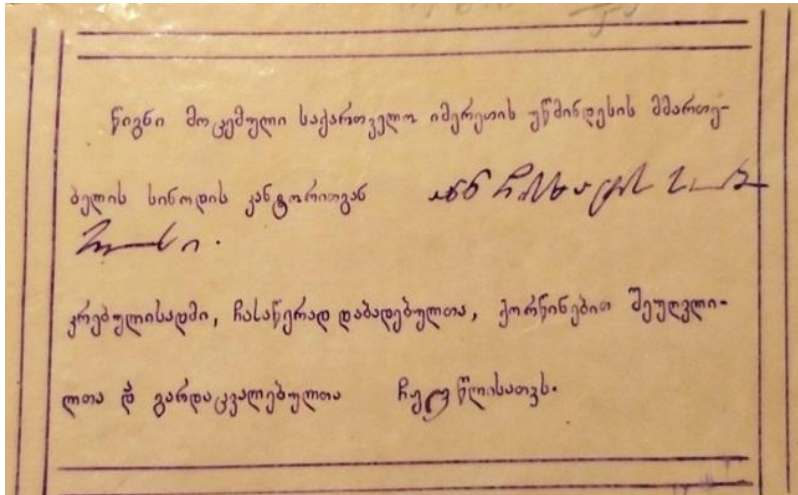 წიგნი მოცემული საქართველო იმერეთის უწმინდესის მმართე-
ბელის სინოდის კანტორითგან
კრებულისადმი, ჩასაწერად დაბადებულთა, ქორწინებით შეუღვლი-
ლთა და გარდაცვალებულთა ჩყლგ წლისათვს.